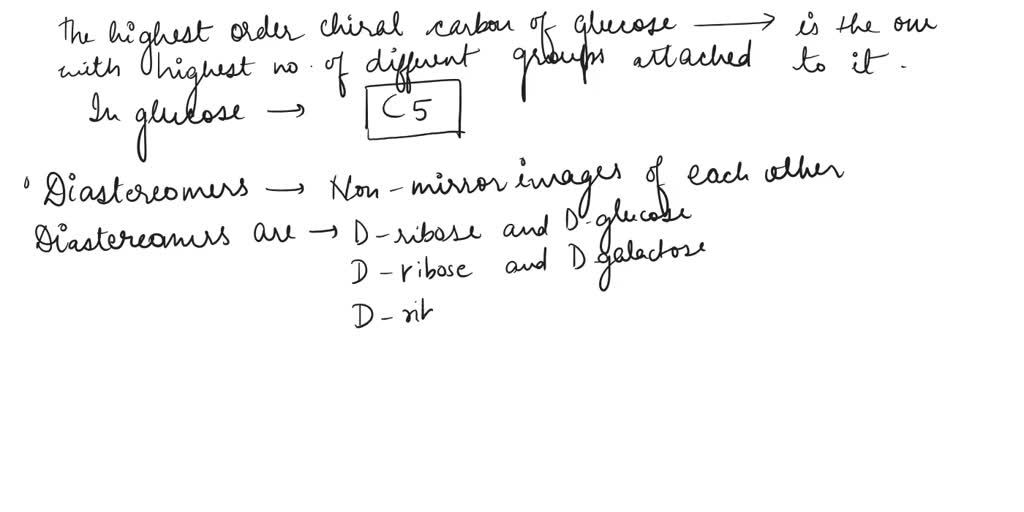 The highest order chiral carbon of glucose → is the one
with highest no. of different groups attached to it.
In glucose → C5
Diastereomers → Non-mirror images of each other
Diastereomers are → D-ribose and D-glucose
D-ribose and D galactose
D-rib